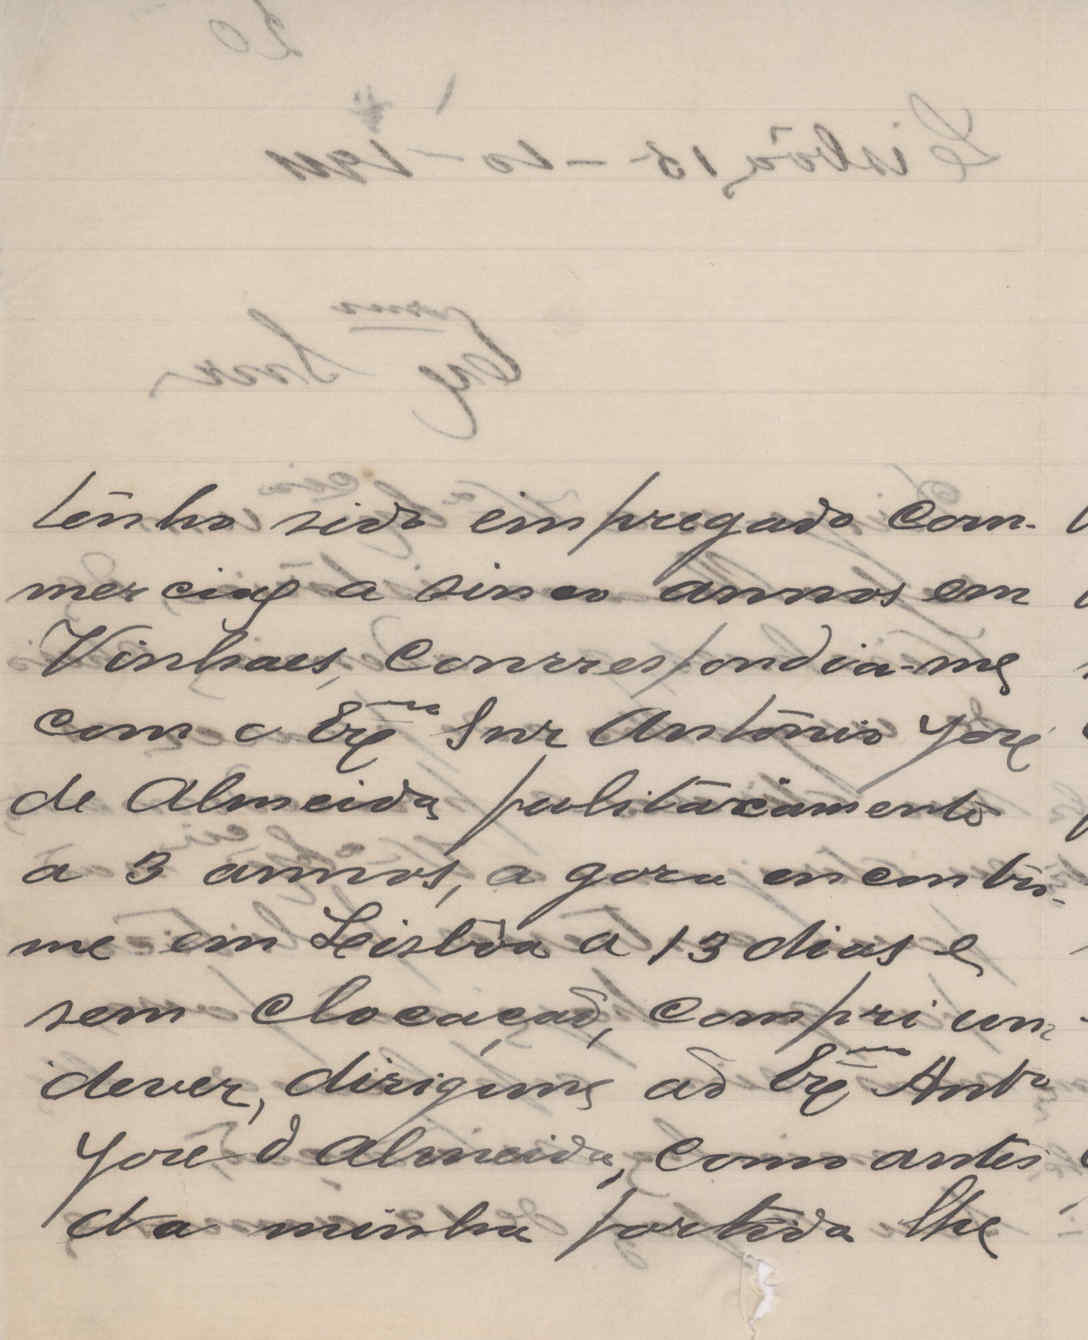 tenho sido empregado com-
mercial a sinco annos em
Vinhaes, Conrrespondia-me
com o Exmo Snr António José
de Almeida, pulitàcamente
a 3 annos, a gora encontro-
me em Leisbôa a 13 dias e
sem clocaçaõ, compri um
dever, dirigime aõ Exmo Anto
José d Almeida, como antes
da minha partida lhe